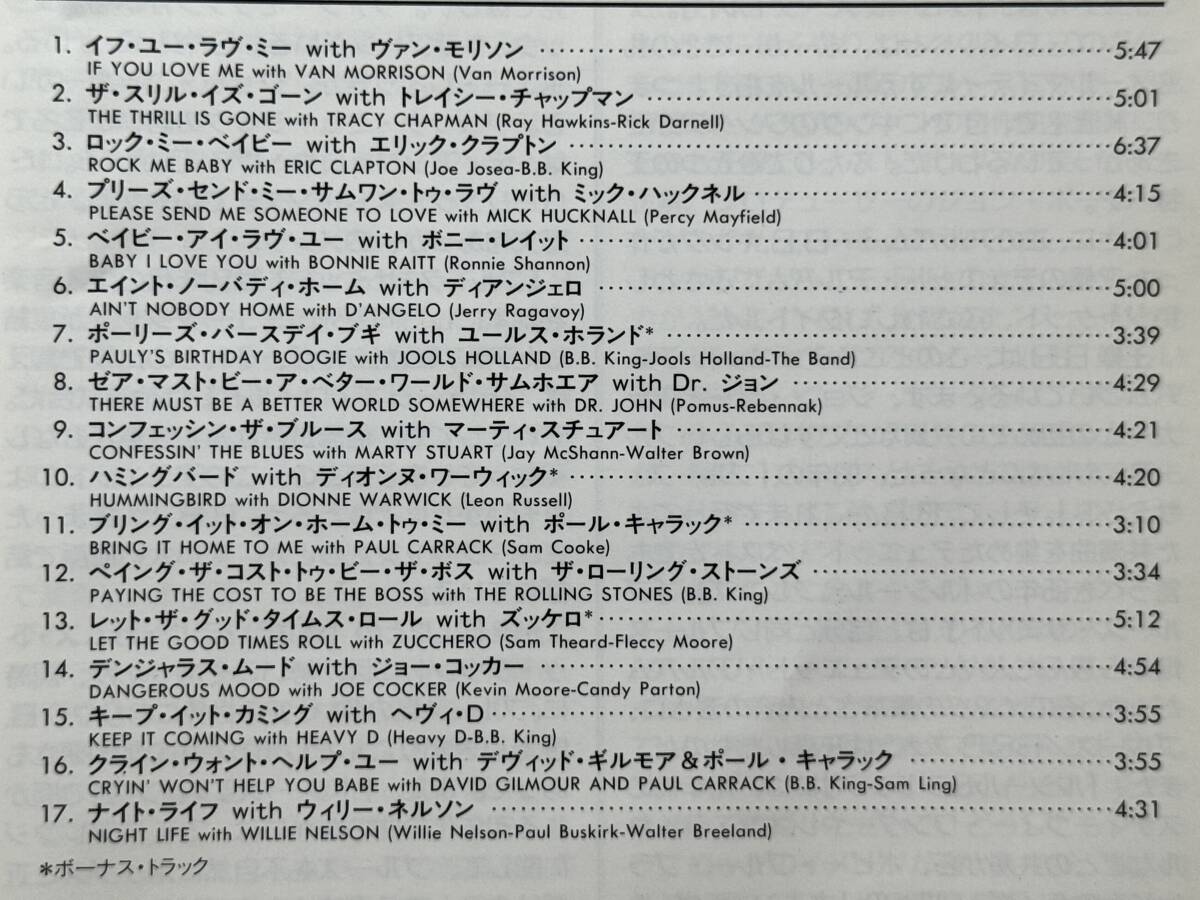 1. イフ・ユー・ラヴ・ミー with ヴァン・モリソン 5:47
IF YOU LOVE ME with VAN MORRISON (Van Morrison)
2. ザ・スリル・イズ・ゴーン with トレイシー・チャップマン 5:01
THE THRILL IS GONE with TRACY CHAPMAN (Ray Hawkins-Rick Darnell)
3. ロック・ミー・ベイビー with エリック・クラプトン 6:37
ROCK ME BABY with ERIC CLAPTON (Joe Josea-B.B. King)
4. プリーズ・センド・ミー・サムワン・トゥ・ラヴ with ミック・ハックネル 4:15
PLEASE SEND ME SOMEONE TO LOVE with MICK HUCKNALL (Percy Mayfield)
5. ベイビー・アイ・ラヴ・ユー with ボニー・レイット 4:01
BABY I LOVE YOU with BONNIE RAITT (Ronnie Shannon)
6. エイント・ノーバディ・ホーム with ディアンジェロ 5:00
AIN'T NOBODY HOME with D'ANGELO (Jerry Ragavoy)
7. ポーリーズ・バースデイ・ブギ with ユールス・ホランド* 3:39
PAULY'S BIRTHDAY BOOGIE with JOOLS HOLLAND (B.B. King-Jools Holland-The Band)
8. ゼア・マスト・ビー・ア・ベター・ワールド・サムホエア with Dr. ジョン 4:29
THERE MUST BE A BETTER WORLD SOMEWHERE with DR. JOHN (Pomus-Rebennak)
9. コンフェッシン・ザ・ブルース with マーティ・スチュアート 4:21
CONFESSIN' THE BLUES with MARTY STUART (Jay McShann-Walter Brown)
10. ハミングバード with ディオンヌ・ワーウィック* 4:20
HUMMINGBIRD with DIONNE WARWICK (Leon Russell)
11. ブリング・イット・オン・ホーム・トゥ・ミー with ポール・キャラック* 3:10
BRING IT HOME TO ME with PAUL CARRACK (Sam Cooke)
12. ペイング・ザ・コスト・トゥ・ビー・ザ・ボス with ザ・ローリング・ストーンズ 3:34
PAYING THE COST TO BE THE BOSS with THE ROLLING STONES (B.B. King)
13. レット・ザ・グッド・タイムス・ロール with ズッケロ* 5:12
LET THE GOOD TIMES ROLL with ZUCCHERO (Sam Theard-Fleccy Moore)
14. デンジャラス・ムード with ジョー・コッカー 4:54
DANGEROUS MOOD with JOE COCKER (Kevin Moore-Candy Parton)
15. キープ・イット・カミング with ヘヴィ・D 3:55
KEEP IT COMING with HEAVY D (Heavy D-B.B. King)
16. クライン・ウォント・ヘルプ・ユー with デヴィッド・ギルモア&ポール・キャラック 3:55
CRYIN' WON'T HELP YOU BABE with DAVID GILMOUR AND PAUL CARRACK (B.B. King-Sam Ling)
17. ナイト・ライフ with ウィリー・ネルソン 4:31
NIGHT LIFE with WILLIE NELSON (Willie Nelson-Paul Buskirk-Walter Breeland)
*ボーナス・トラック